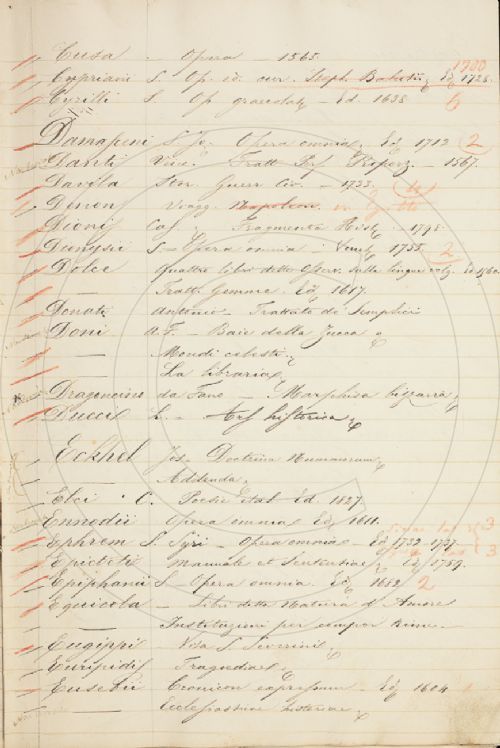 Cusa - Opera - 1565.
1700
Cypriani S. Op. ed. cur. Steph. Ed. 1728.
Cyrilli S. Op. - Ed. 1638 6
Damasceni S. Jo. Opera omnia Ed. 1712 2
Danti Vinc. Tratt. Perf. Proporz. - 1567.
Davila Stor. Guerr. Civ. - 1733.
Denon Viagg. Napoleon. in Egitto
Dionis Cas. Fragmenta Hist. 1798
Dionysii S - Opera omnia Venet. 1755. 2
Dolce quattro libri delle Osserv. sulla lingua volg. Ed. 1560.
— Tratt. Gemme. Ed. 1617.
Donati Antonio - Trattato de' Semplici
Doni A. F. - Baie della Zucca
— Mondi celesti
— La libraria
Dragoncino da Fano - Marphisa bizzarra
Duccii L. - Ars historica
Eckhel Jos. Doctrina Nummorum
Addenda.
Elci C. Poesie Ital. Ed. 1827.
Ennodii Opera omnia Ed. 1611.
3
Ephrem S. Syri - Opera omnia - Ed. 1732-1747.
3
Epicteti Manuale et Sententiae Ed. 1759.
Epiphanii S. - Opera omnia. Ed. 1682 2
Equicola - Libri della Natura d'Amore
Instituzioni per compor Rime.
Eugippi - Vita S. Severini
Euripidis Tragoediae
Eusebii Cronicon Ed. 1604
— Ecclesiasticae historiae